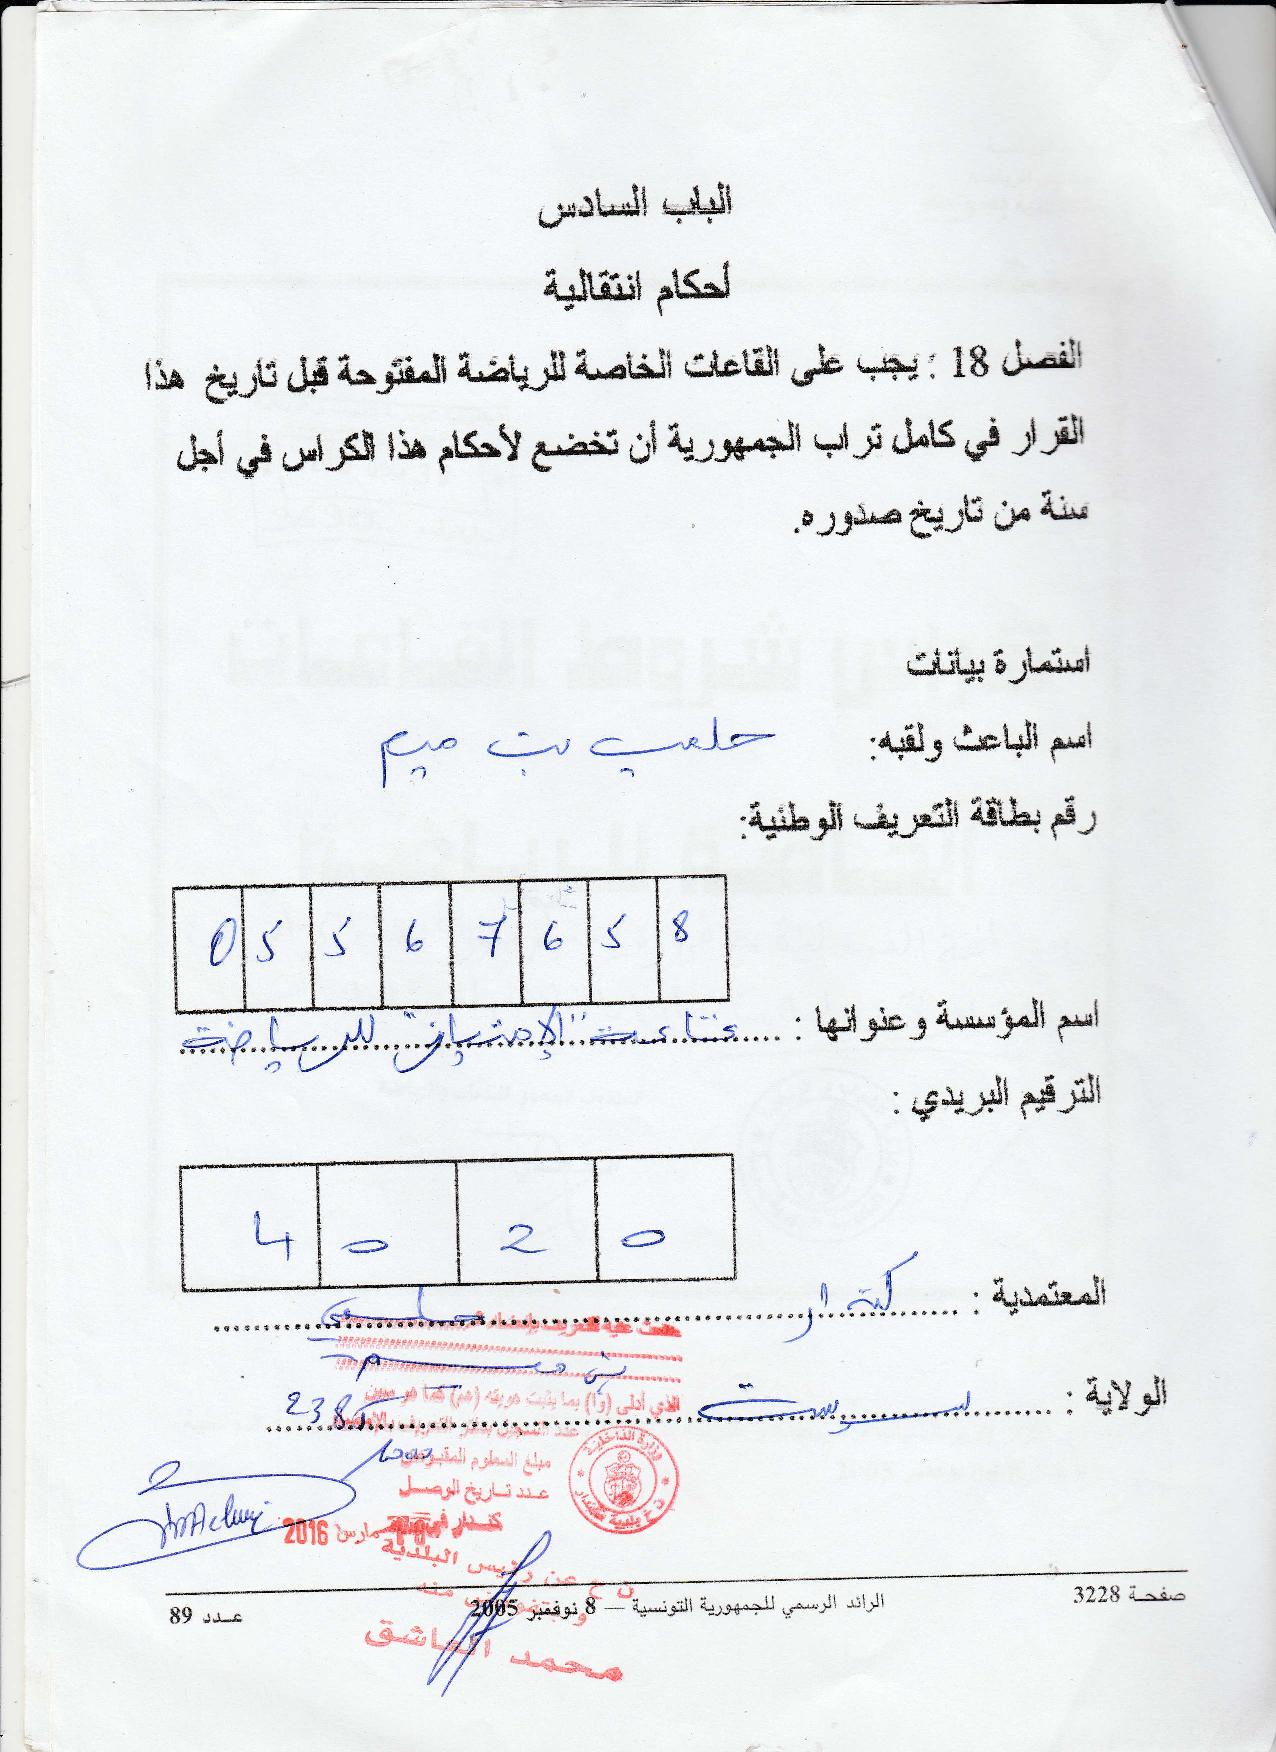 الباب السادس
أحكام انتقالية
الفصل 18 : يجب على القاعات الخاصة للرياضة المفتوحة قبل تاريخ هذا
القرار في كامل تراب الجمهورية أن تخضع لأحكام هذا الكراس في أجل
سنة من تاريخ صدوره.
استمارة بيانات
اسم الباعث ولقبه:
رقم بطاقة التعريف الوطنية:
0 5 5 6 7 6 5 8
اسم المؤسسة وعنوانها : قاعة "الإمتياز" للرياضة
الترقيم البريدي :
4 0 2 0
المعتمدية : كندار
الولاية : سوسة
الذي أدلى (وا) بما يثبت هويته (هم) كما هو مبين
2385
مبلغ المعلوم المقبوض
عدد تاريخ الوصل
كندار في مارس 2016
وزارة الداخلية
عن رئيس البلدية
محمد العاشق
صفحة 3228
الرائد الرسمي للجمهورية التونسية — 8 نوفمبر 2005
عدد 89